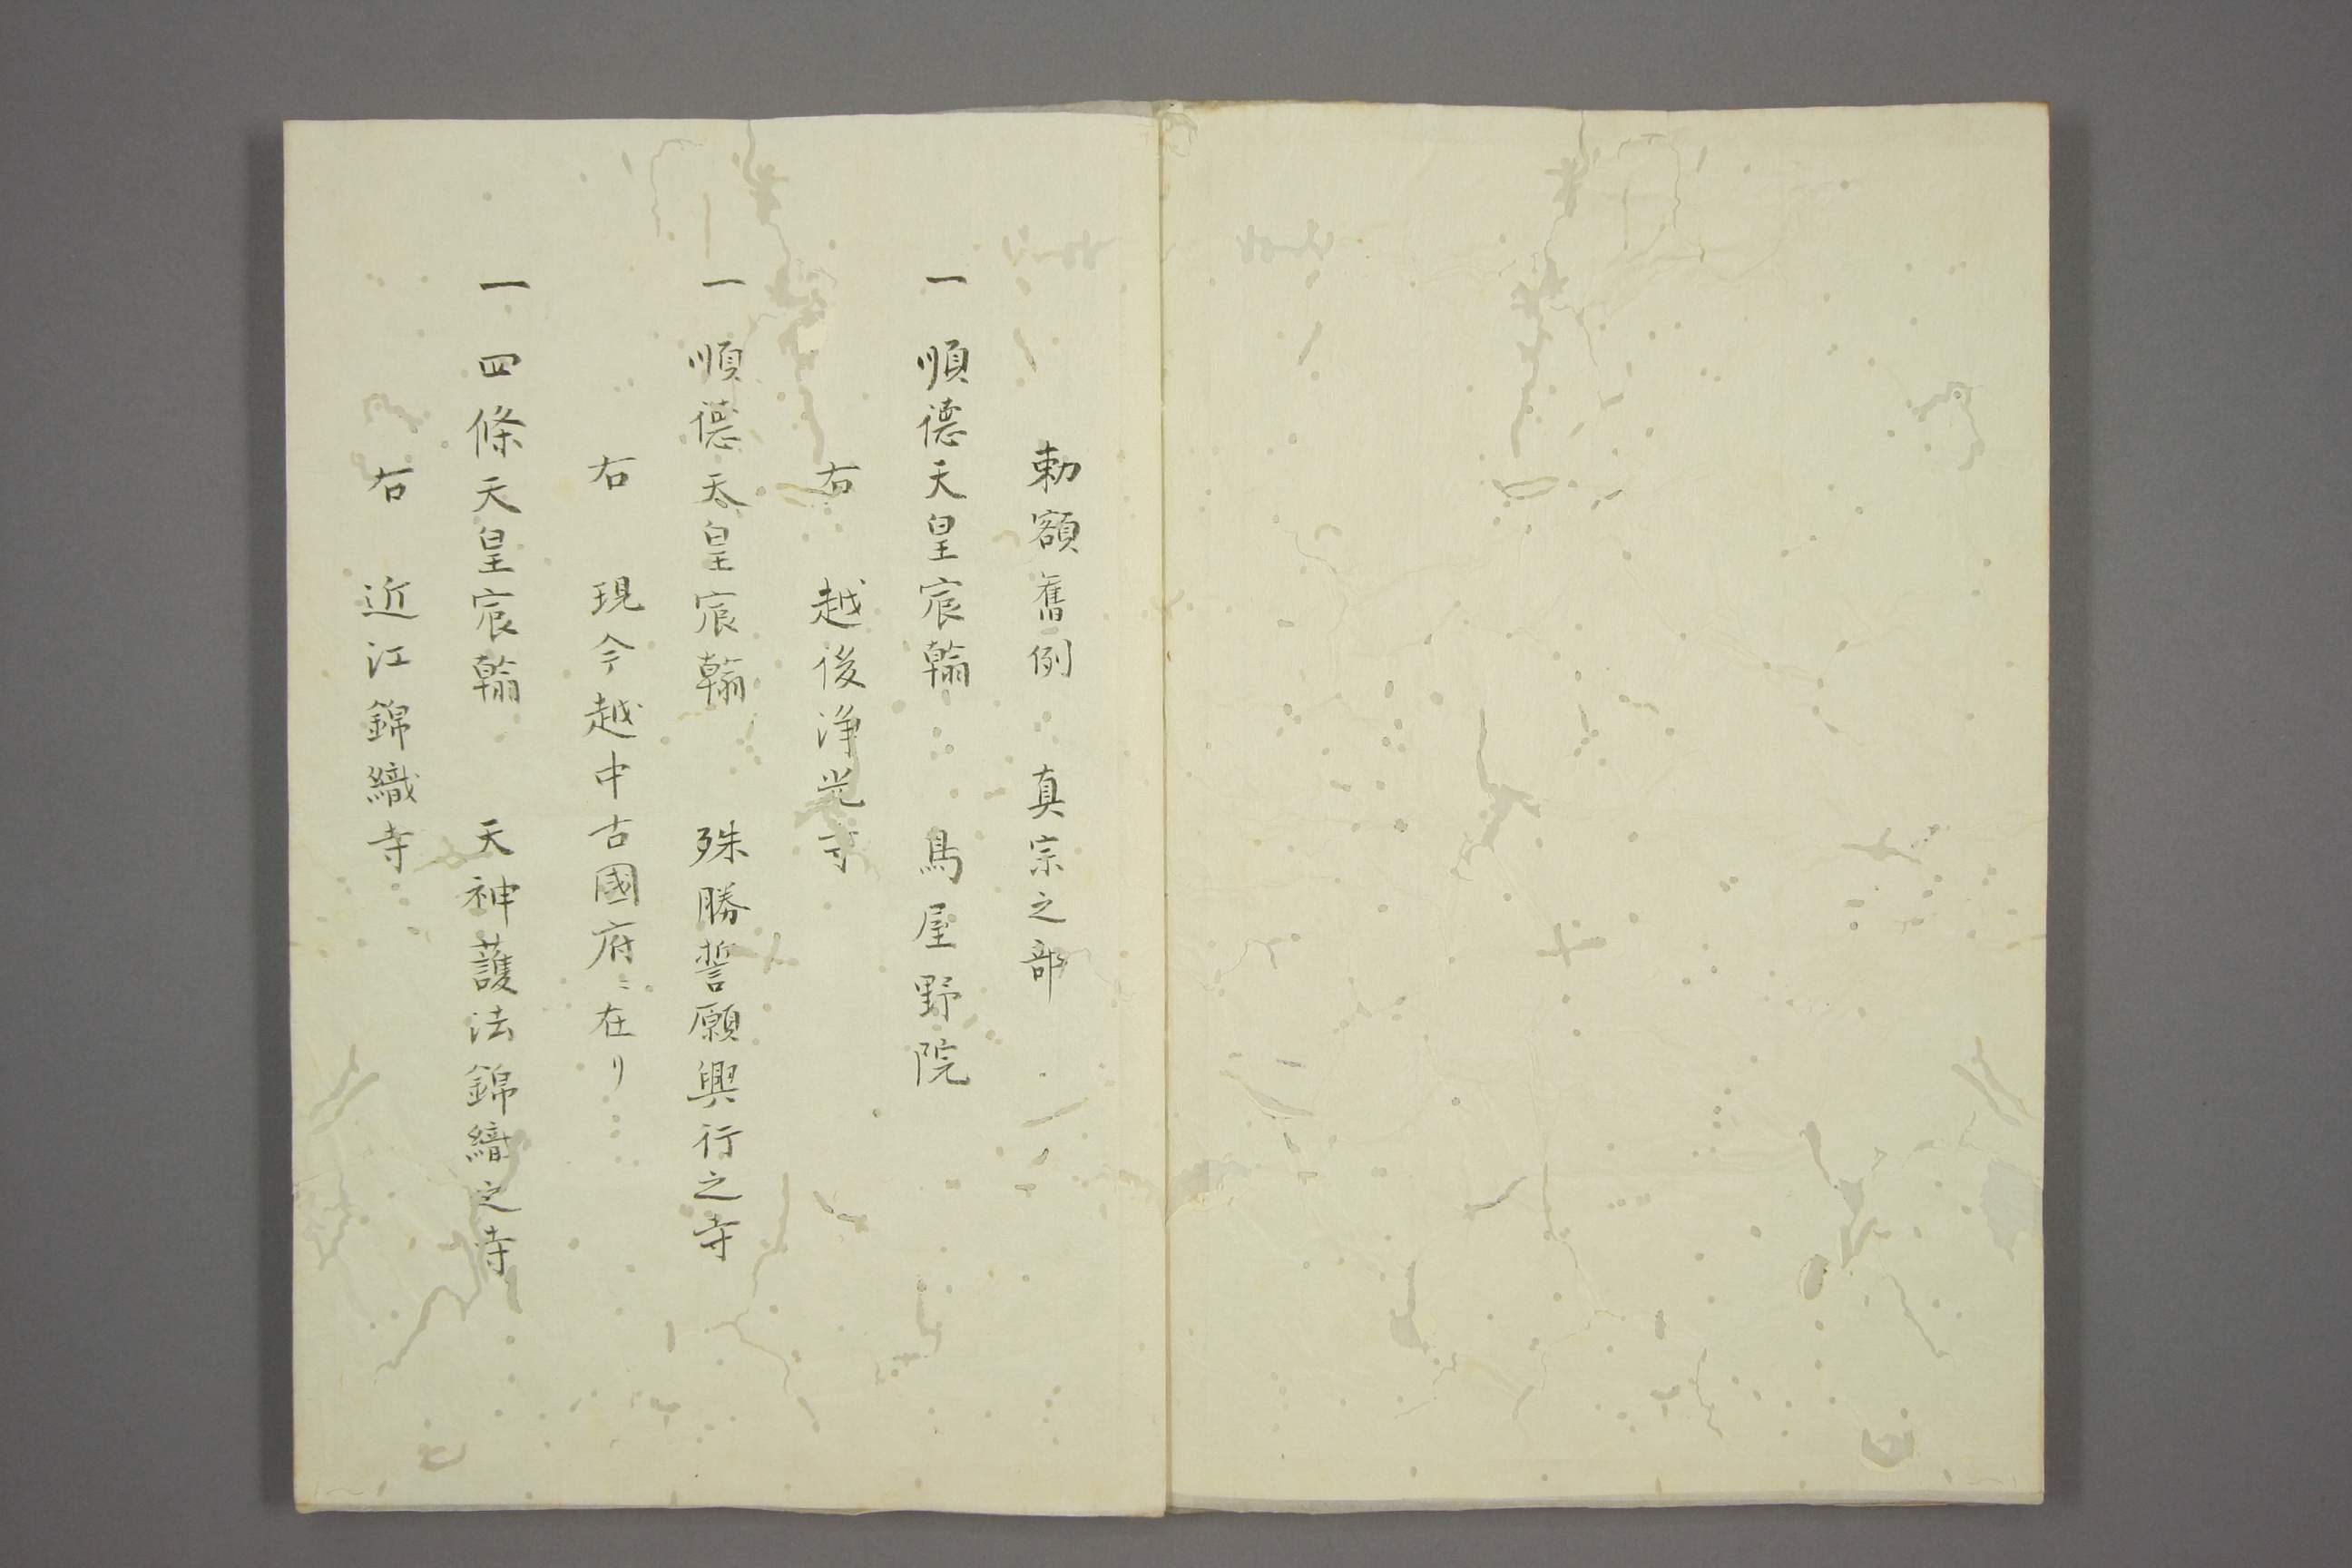 勅額舊例 真宗之部
一 順德天皇宸翰 鳥屋野院
右 越後浄光寺
一 順德天皇宸翰 殊勝誓願興行之寺
右 現今越中古國府ニ在リ
一 四條天皇宸翰 天神護法錦織之寺
右 近江錦織寺